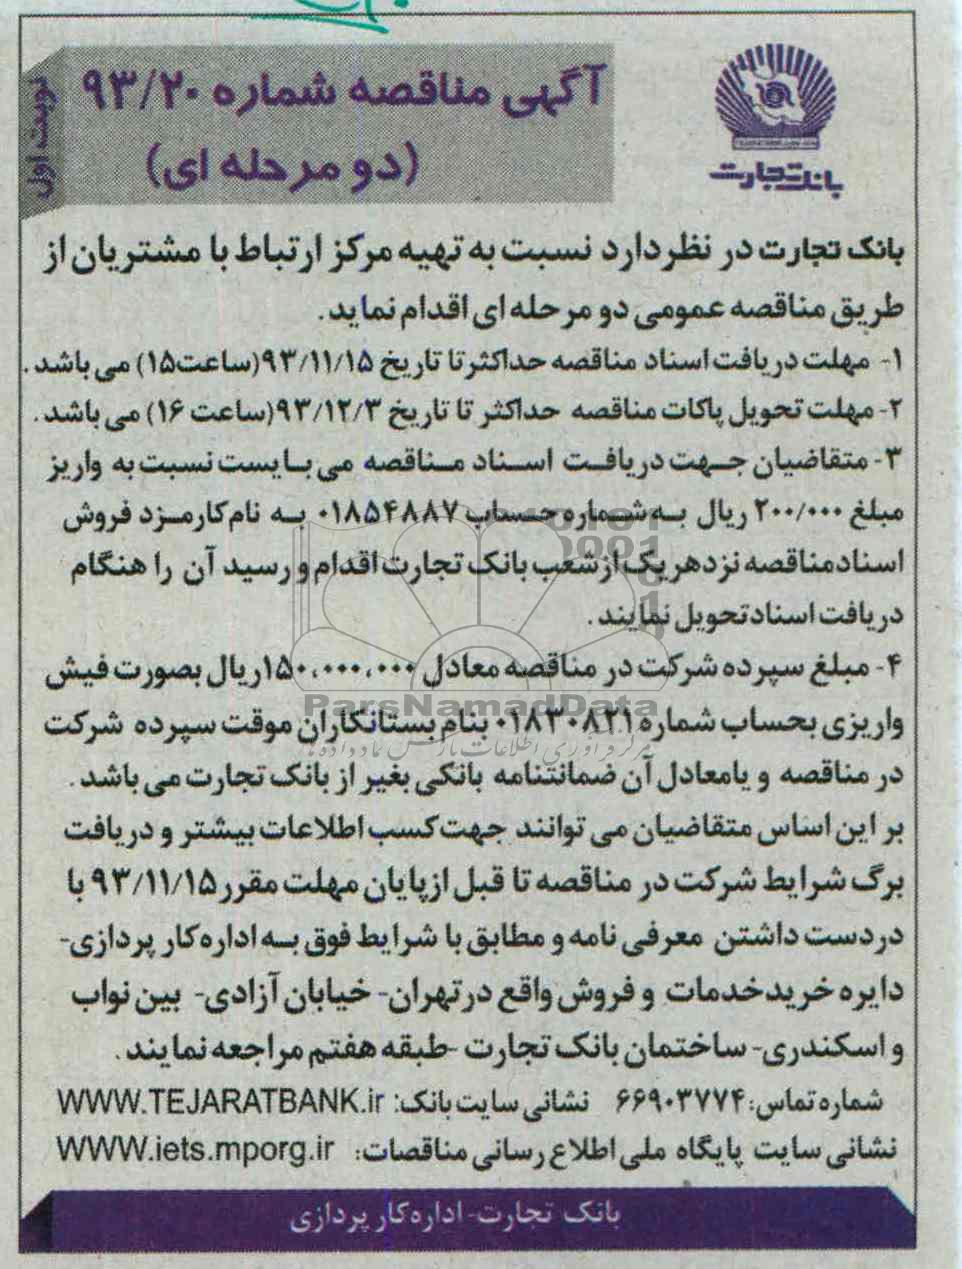 آگهی مناقصه شماره ۹۳/۲۰
(دو مرحله ای)
نوبت اول
بانک تجارت
بانک تجارت در نظردارد نسبت به تهیه مرکز ارتباط با مشتریان از
طریق مناقصه عمومی دو مرحله ای اقدام نماید.
۱- مهلت دریافت اسناد مناقصه حداکثرتا تاریخ ۹۳/۱۱/۱۵(ساعت۱۵) می باشد.
۲- مهلت تحویل پاکات مناقصه حداکثر تا تاریخ ۹۳/۱۲/۳(ساعت ۱۶) می باشد.
۳- متقاضیان جهت دریافت اسناد مناقصه می بایست نسبت به واریز
مبلغ ۲۰۰/۰۰۰ ریال به شماره حساب ۰۱۸۵۴۸۸۷ به نام کارمزد فروش
اسناد مناقصه نزد هریک ازشعب بانک تجارت اقدام و رسید آن را هنگام
دریافت اسناد تحویل نمایند.
۴- مبلغ سپرده شرکت در مناقصه معادل ۱۵۰،۰۰۰،۰۰۰ریال بصورت فیش
واریزی بحساب شماره ۰۱۸۳۰۸۲۱ بنام بستانکاران موقت سپرده شرکت
در مناقصه و یامعادل آن ضمانتنامه بانکی بغیر از بانک تجارت می باشد.
بر این اساس متقاضیان می توانند جهت کسب اطلاعات بیشتر و دریافت
برگ شرایط شرکت در مناقصه تا قبل ازپایان مهلت مقرر۹۳/۱۱/۱۵ با
دردست داشتن معرفی نامه و مطابق با شرایط فوق به اداره کارپردازی-
دایره خرید خدمات و فروش واقع درتهران- خیابان آزادی- بین نواب
و اسکندری- ساختمان بانک تجارت -طبقه هفتم مراجعه نمایند.
شماره تماس: ۶۶۹۰۳۷۷۴ نشانی سایت بانک: WWW.TEJARATBANK.ir
نشانی سایت پایگاه ملی اطلاع رسانی مناقصات: WWW.iets.mporg.ir
بانک تجارت- اداره کارپردازی
ParsNamadData
مرکز فرآوری اطلاعات پارس نماد داده ها